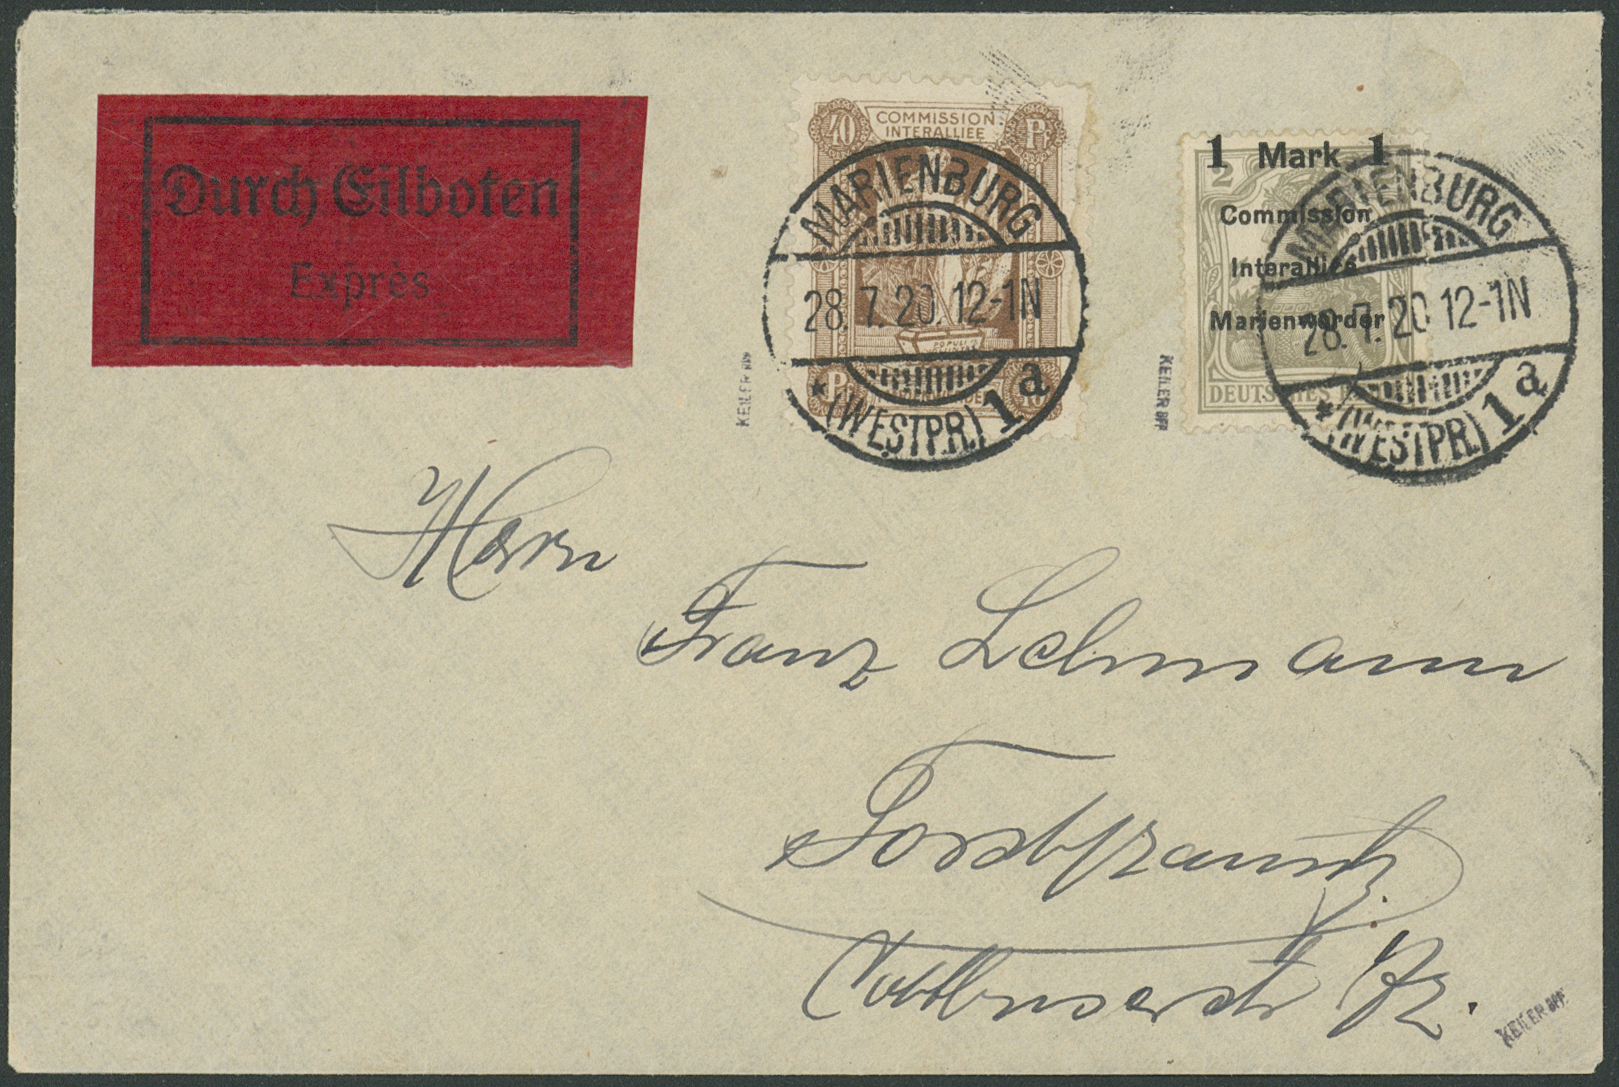 Durch Eilboten
Exprès
40 COMMISSION Pf
INTERALLIÉE
MARIENBURG
28.7.20.12-1N
POPULI
* (WESTPR.) 1a
KEILER BPP
1 Mark 1
2
Commission
Interalliée
Marienwerder
DEUTSCHES
MARIENBURG
28.7.20 12-1N
* (WESTPR.) 1a
KEILER BPP
Herrn
Franz Lehmann
KEILER BPP